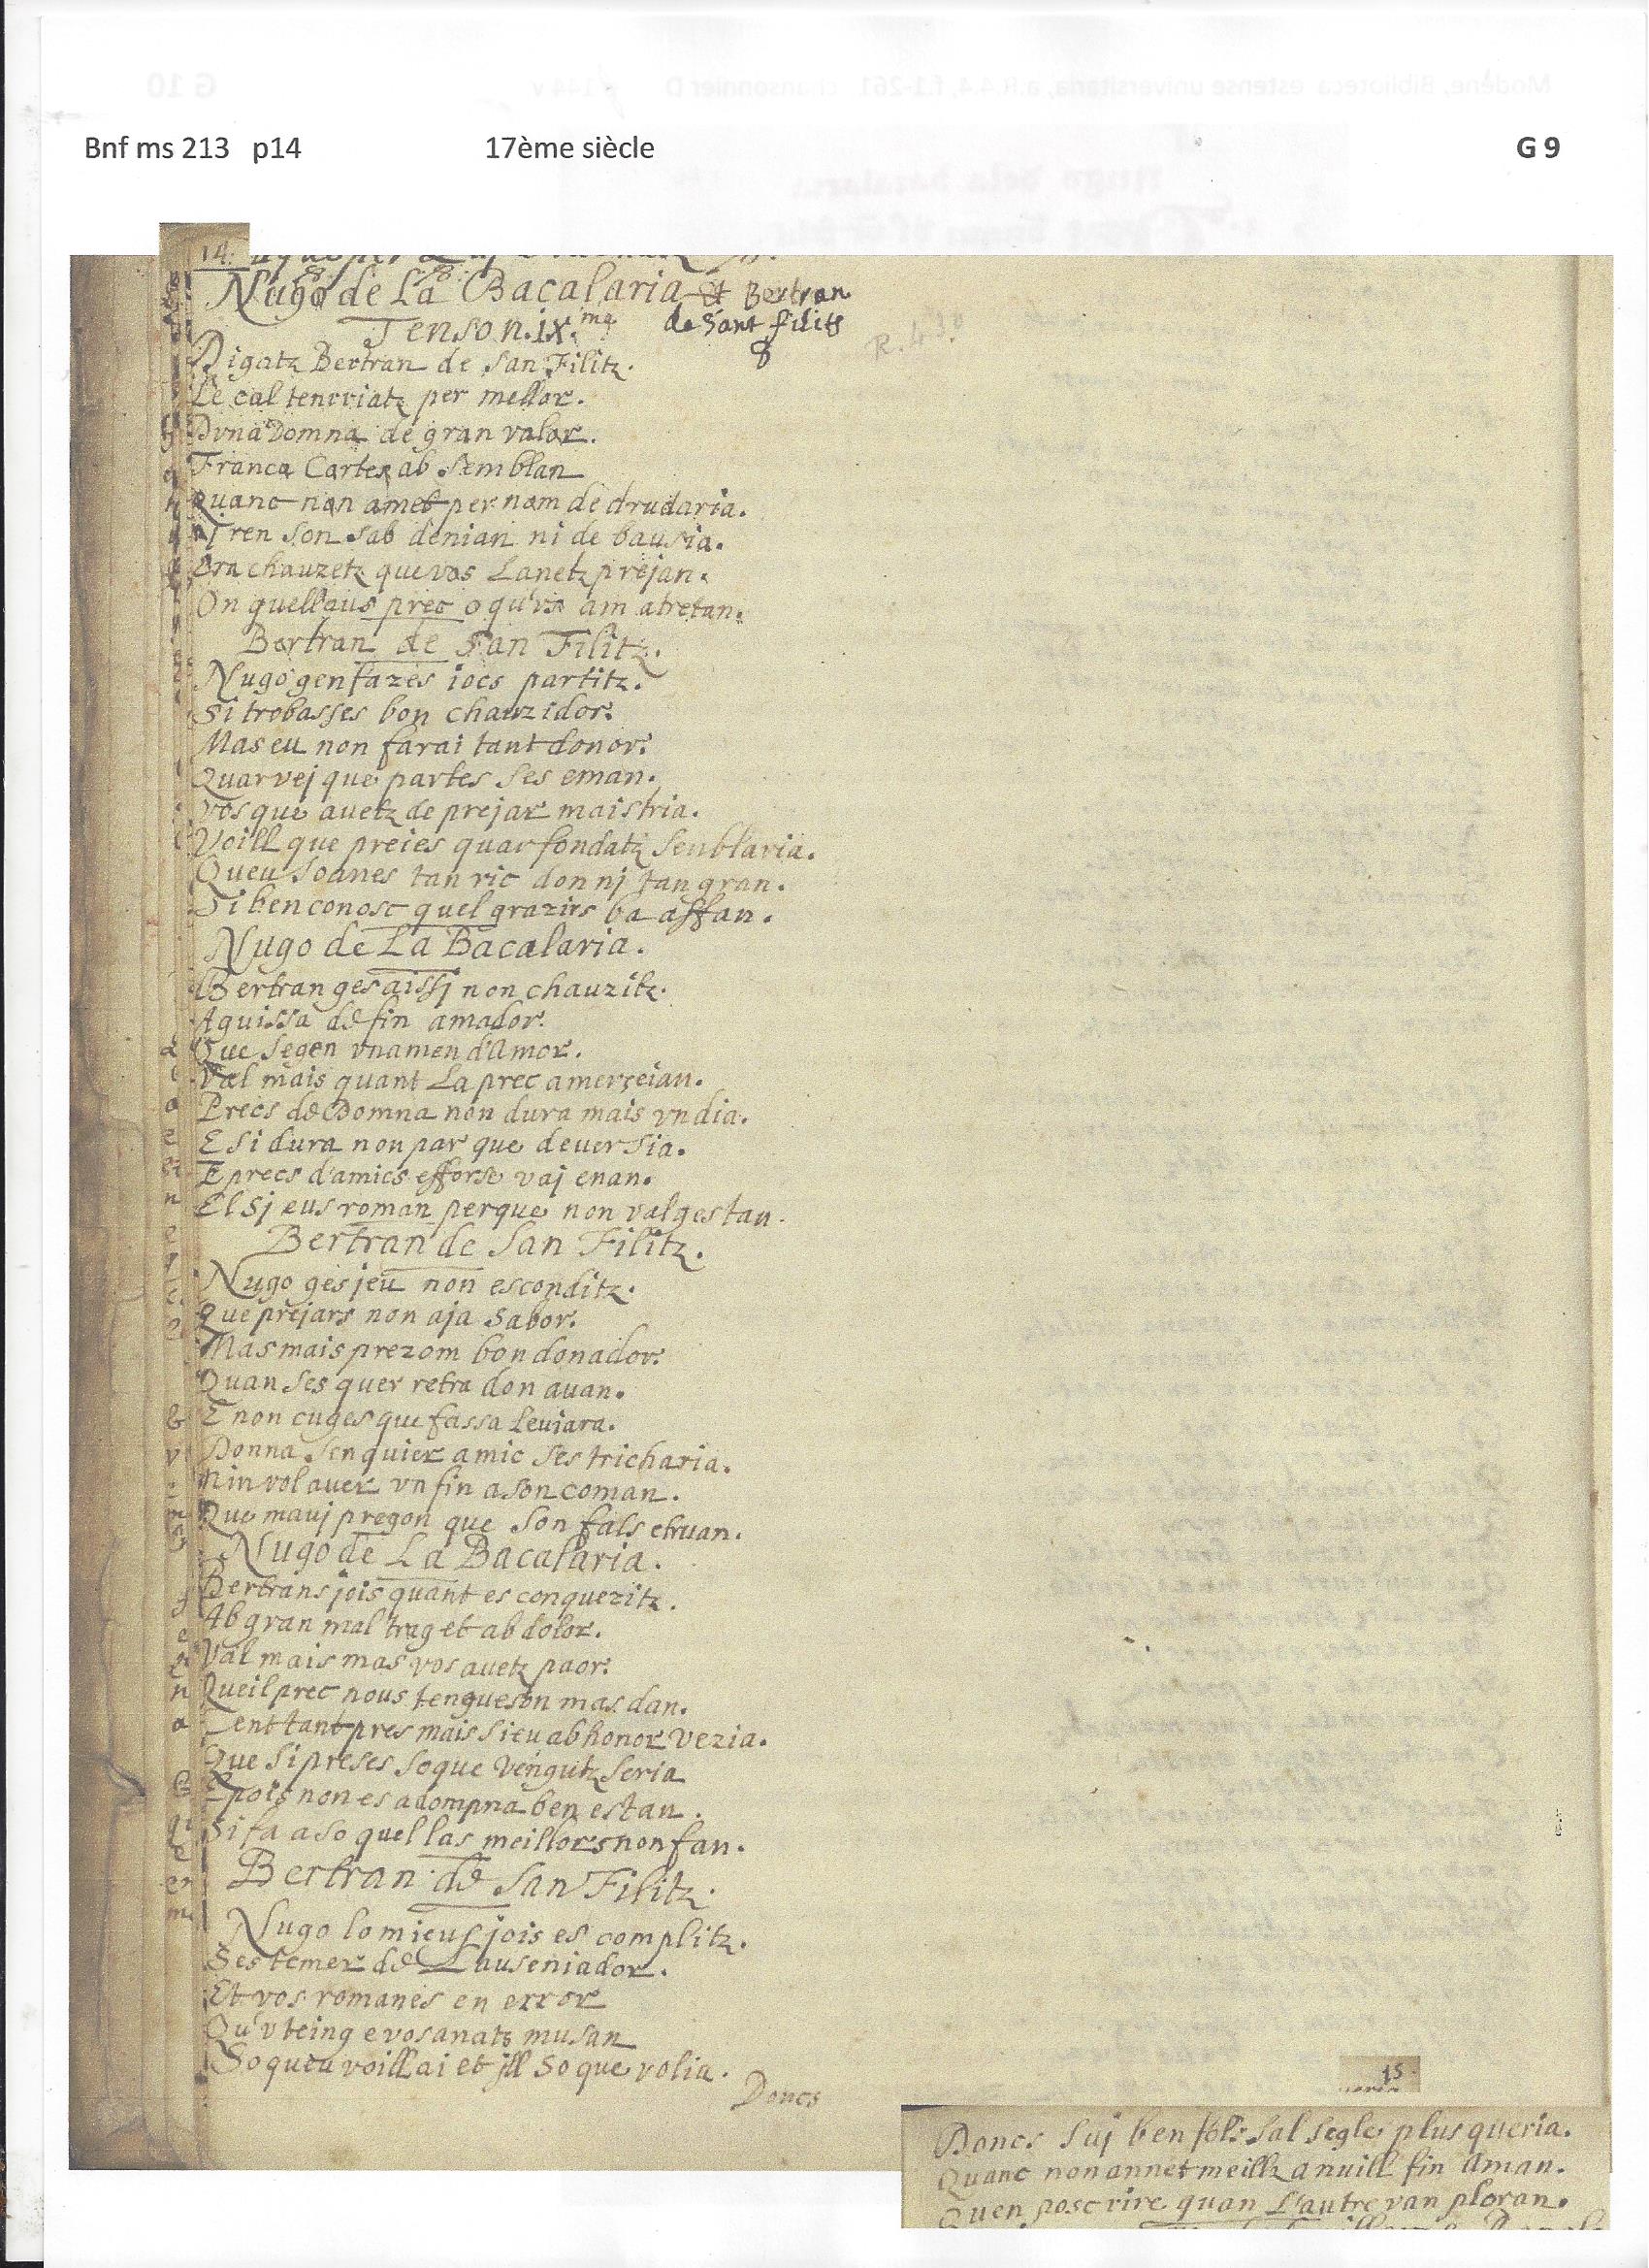 Bnf ms 213 p14 17ème siècle G 9
14.
Nugo de La Bacalaria et Bertran
Tenson. ix.me de Sant filitz
R. 43.
Digatz Bertran de San Filitz.
Le cal tenrriatz per mellor.
Duna Domna de gran valor.
Franca Cortes ab semblan
Quanc non amet per nom de drudaria.
nj ren son sab denian ni de bausia.
Era chauzetz que vos Lanetz prejan.
On quellaus prec o qu'us am atretan.
Bertran de San Filitz.
Nugo gen fazes iocs partitz.
Si trobasses bon chauzidor.
Mas eu non farai tant donor.
Quar vej que partes ses eman.
vos que auetz de prejar maistria.
Voill que preies quar fondatz senblaria.
Queu soanes tan ric don nj tan gran.
Si ben conosc quel grazirs ba affan.
Nugo de La Bacalaria.
Bertran ges aissj non chauzitz.
Aguissa de fin amador.
Que segen vnamen d'Amor.
Val mais quant La prec amerceian.
Precs de Domna non dura mais vn dia.
E si dura non par que deuer sia.
E precs d'amics esforse vaj enan.
El sj eus roman perque non val ges tan.
Bertran de San Filitz.
Nugo ges jeu non esconditz.
Que prejars non aja sabor.
Mas mais prezom bon donador.
Quan ses quer retra don auan.
E non cuges que fassa Leuiara.
Donna senquier amic ses tricharia.
Nin vol auer vn fin a son coman.
Que mauj pregon que son fals etruan.
Nugo de La Bacalaria.
Bertrans jois quant es conquezitz.
Ab gran mal trag et ab dolor.
Val mais mas vos auetz paor.
Queil prec nous tengueson mas dan.
Cent tant pres mais sieu ab honor vezia.
Que si preses so que vengutz seria
E pois non es a dompna ben estan.
Si fa aso quel las meillors non fan.
Bertran de San Filitz.
Nugo lo mieus jois es complitz.
Ses temer de Lauseniador.
Et vos romanes en error
Qu'u teing e vos anatz musan
So queu voill ai et jll so que volia.
Doncs
15.
Doncs suj ben fols sal segle plus queria.
Quanc non annet meillz a nuill fin Aman.
Quen posc rire quan L'autre van ploran.